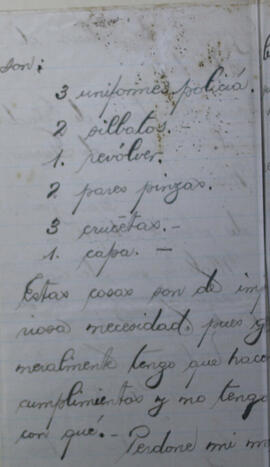 son:
3 uniformes policiá.
2 silbatos. -
1. revólver.
2 pares pinzas.
3 crucetas. -
1. capa. -
Estas cosas son de imp
riosa necesidad, pues g
neralmente tengo que hacer
cumplimientos y no tengo
con qué. - Perdone mi m